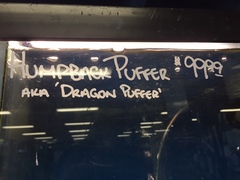 Humpback Puffer $99.99
AKA 'Dragon Puffer'